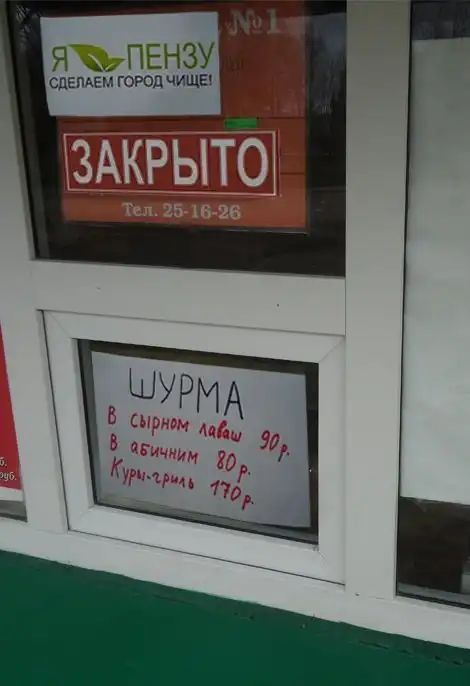 №1
Я ПЕНЗУ
СДЕЛАЕМ ГОРОД ЧИЩЕ!
ЗАКРЫТО
Тел. 25-16-26
ШУРМА
В сырном лаваш 90р.
В абичним 80р.
Куры-гриль 170р.
б.
руб.